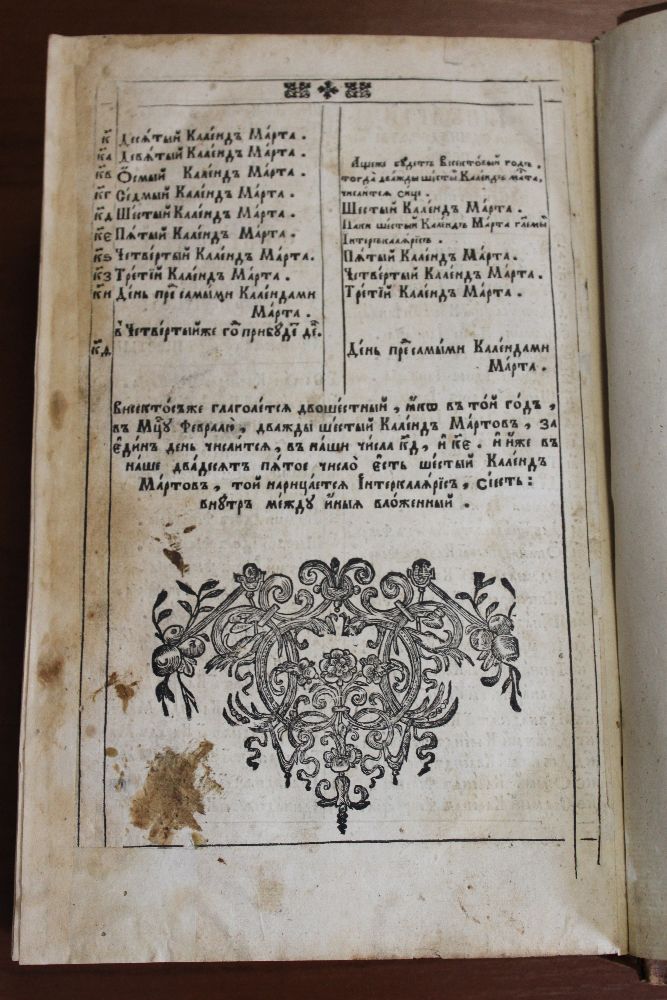 к҃ Деся́тый Кале́ндъ Ма́рта .
ка҃ Девя́тый Кале́ндъ Ма́рта .
кв҃ О́смый Кале́ндъ Ма́рта .
кг҃ Се́дмый Кале́ндъ Ма́рта .
кд҃ Ше́стый Кале́ндъ Ма́рта .
кє҃ Пя́тый Кале́ндъ Ма́рта .
кѕ҃ Четве́ртый Кале́ндъ Ма́рта.
кз҃ Тре́тїй Кале́ндъ Ма́рта .
ки҃ Де́нь пре самы́ми Кале́ндами
Ма́рта .
в Четве́ртыйже го прибꙋде де .
кѳ҃
Ащеже бꙋдетъ Висекто́вый годъ .
тогда̀ два́жды шесты́й Кале́ндъ ма́та,
числится сице .
Ше́стый Кале́ндъ Ма́рта .
Паки ше́стый Кале́ндъ Ма́рта гл҃емый
Інтеркаля́рїсъ .
Пя́тый Кале́ндъ Ма́рта .
Четве́ртый Кале́ндъ Ма́рта .
Тре́тїй Кале́ндъ Ма́рта .
Де́нь пре самы́ми Кале́ндами
Ма́рта .
Висекто́съже глаго́лется двоше́стный , ꙗ҆́кѡ въ то́й го́дъ ,
въ Мц҃ꙋ Февралю̀ , два́жды ше́стый Кале́ндъ Ма́ртовъ , за
є҆ди́нъ день числи́тся , въ на́ши чи́сла кд҃ , и҆ кє҃ . и҆ и҆́же въ
наше два́десятъ пя́тое число̀ є҆́сть ше́стый Кале́ндъ
Ма́ртовъ , той нарица́ется Інтеркаля́рїсъ , сіе́сть :
внꙋ́трь ме́ждꙋ и҆́ныя вло́женный .